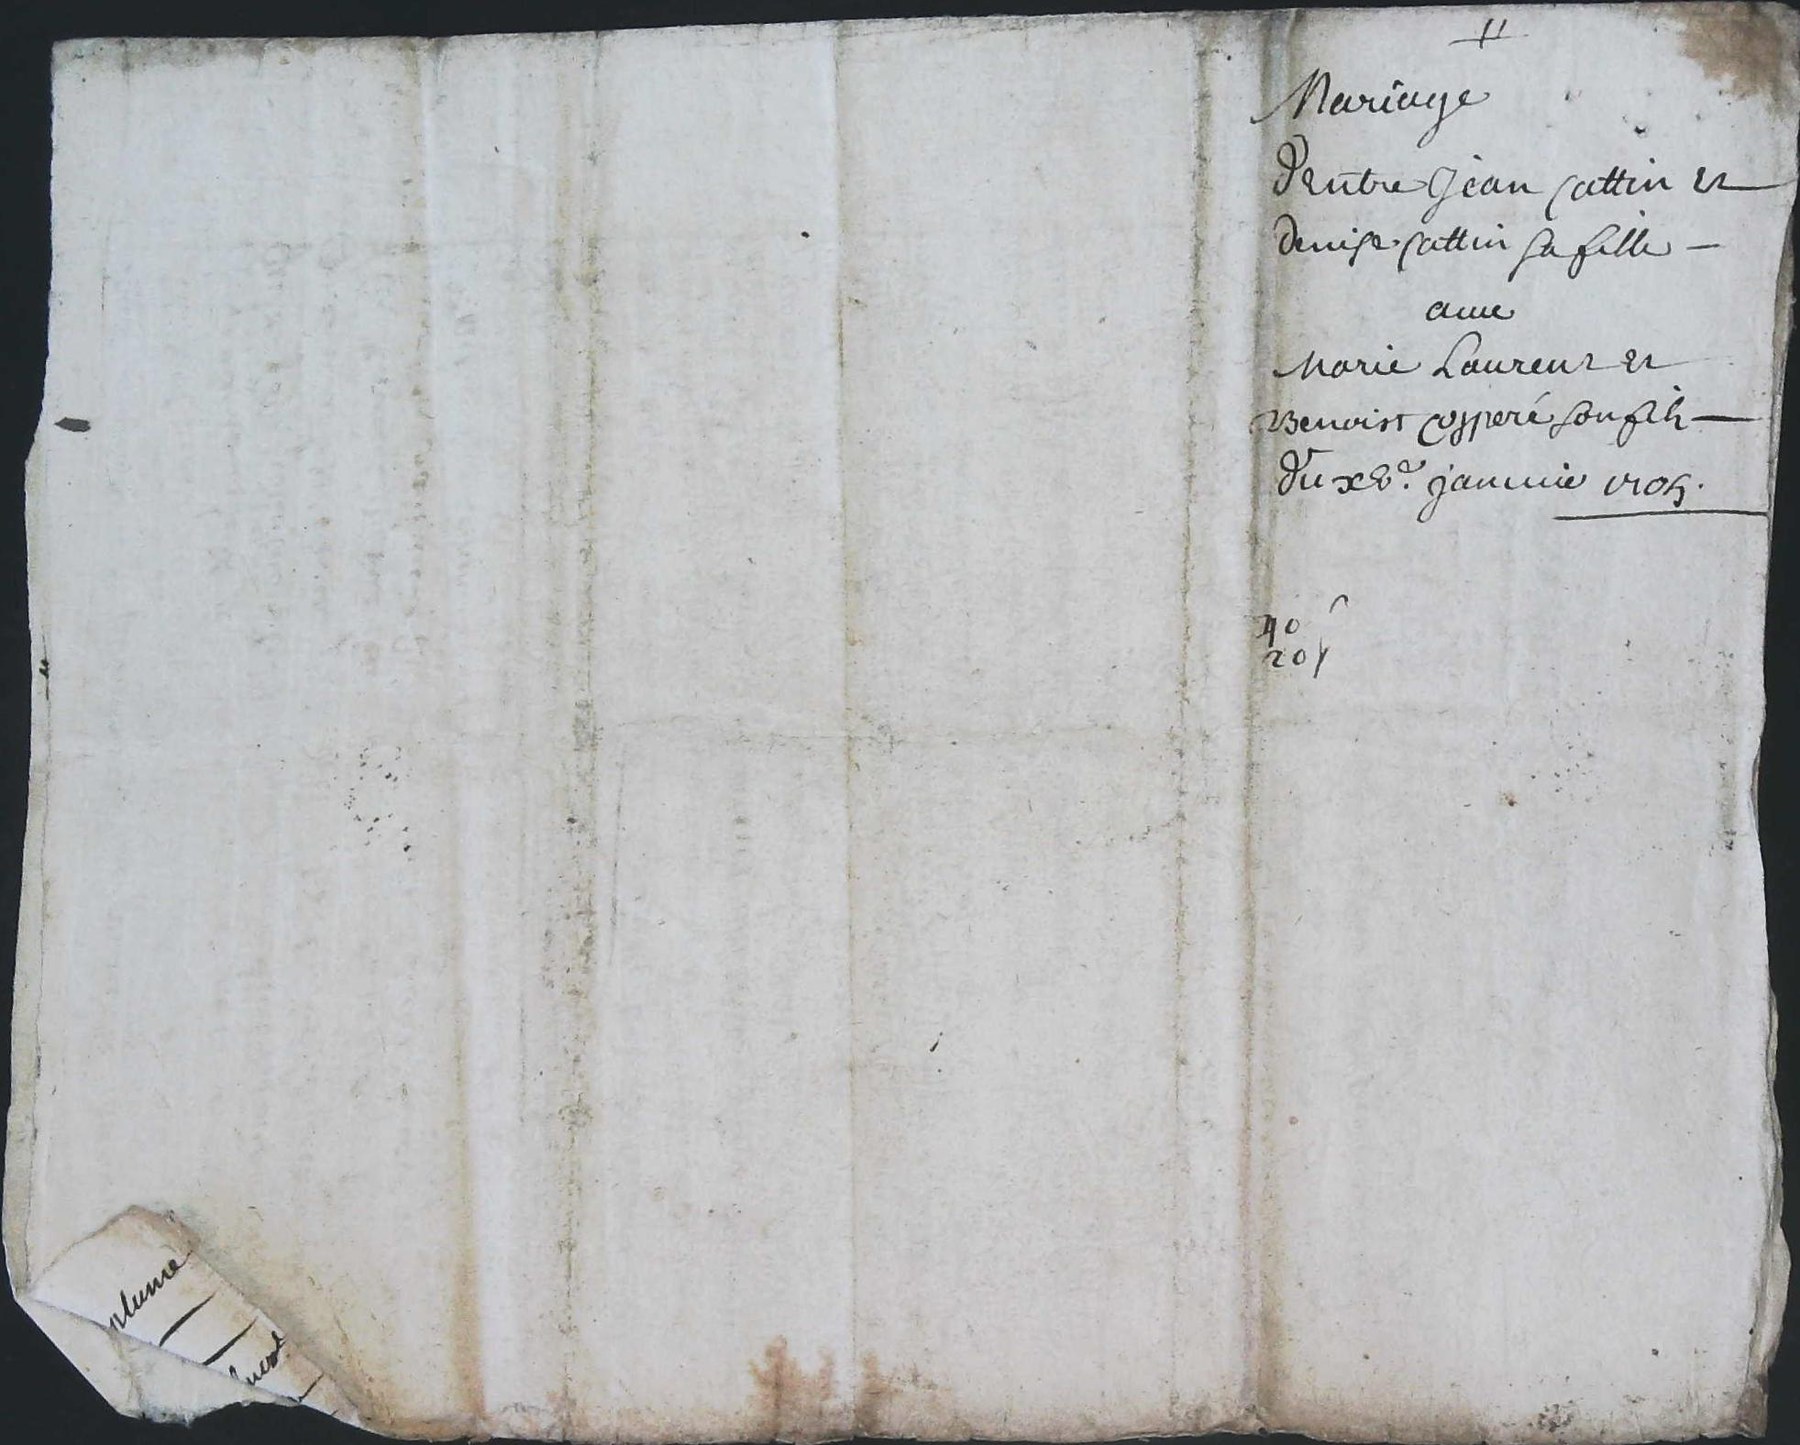 11
Mariage
d'entre Jean Cattin et
denise Cattin sa fille —
avec
Marie Laurent et
Benoist Cosperé son fils —
du xve janvier 1705.
40
20
plume